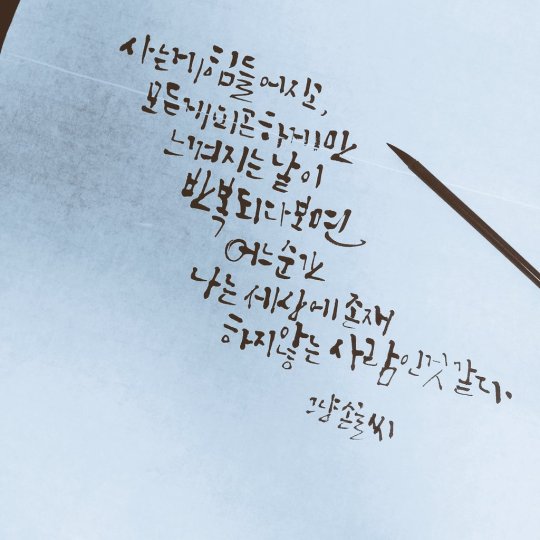 사는게 힘들어지고,
모든게 피곤하게만
느껴지는 날이
반복되다보면
어느순간
나는 세상에 존재
하지않는 사람인것 같다.
그냥손글씨